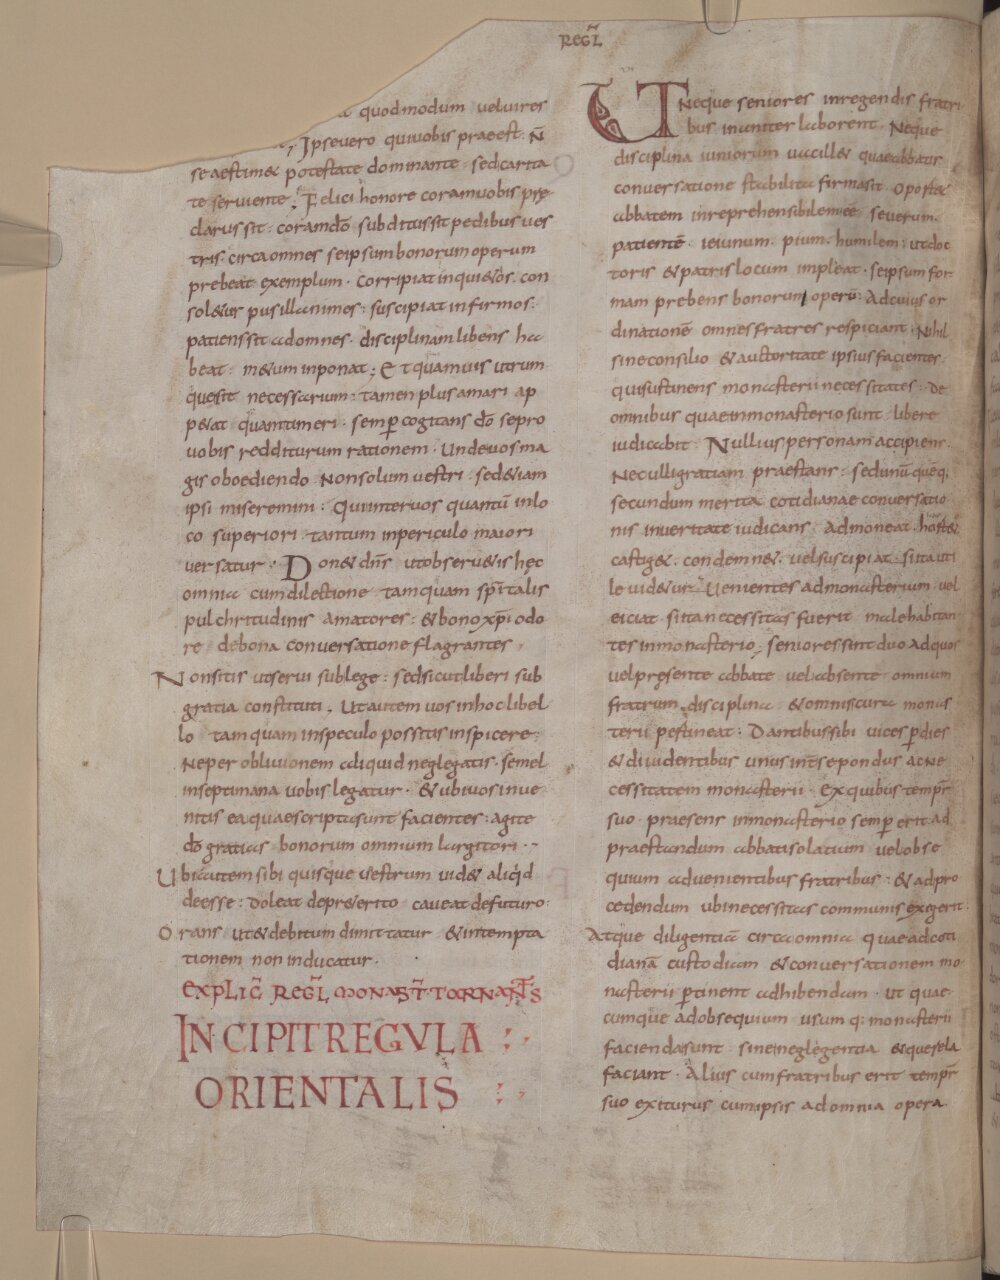 REGL̃
quodmodum veluires
Ipsevero quivobis praeest. N̄
se aestim& potestate dominante · sedcarita
te serviente ; Felici honore coramvobis prę
clarus sit : coramdo͞ subditus sit pedibus ves
tris. circa omnes seipsum bonorum operum
prebeat exemplum · Corripiat inqui&os. con
sol&ur pusillanimes : suscipiat infirmos :
patiens sit adomnes · disciplinam libens ha
beat : m&um inponat ; Et quamuis utrum
quesit necessarum : tamen plus amari ap
p&at quam timeri · semp̱ cogitans do͞ sepro
uobis redditurum rationem · Unde uos ma
gis oboediendo Non solum uestri : sed&iam
ipsi miseremini : Qui inter uos quantū inlo
co superiori · tantum inpericulo maiori
uersatur · Don& dn͞s ut obseru&is hęc
omnia cum dilectione tamquam spi͞talis
pulchritudinis amatores : & bono xp͞i odo
re debona conuersatione flagrantes ,
Nonsitis ut serui sublege : sedsicut liberi sub
gratia constituti . Ut autem uos inhoc libel
lo tamquam inspeculo possitis inspicere :
Neper obliuionem aliquid neglegatis · semel
inseptimana uobis legatur · & ubi uos inue
nitis ea quae scripta sunt facientes : agite
do͞ gratias bonorum omnium largitori ·
Ubi autem sibi quisque uestrum uid& aliq̇d
deesse : Doleat depr&erito caueat defuturo :
Orans ut & debitum dimittatur & intempta
tionem non inducatur ·
EXPLIC̃ REGL̃ MONAST̃ · TORNANT̃S
INCIPIT REGVLA
ORIENTALIS
UT Neque seniores inregendis fratri
bus inaniter laborent · Neque
disciplina iuniorum uacill& quae abbatis
conuersatione stabilita firmasit · Oport&
abbatem inreprehensibilem eē · seuerum ·
patientē · ieiunum · pium · humilem : ut doc
toris & patris locum impleat · seipsum for
mam prebens bonorum operū : Ad cuius or
dinationē omnes fratres respiciant ; Nihil
sine consilio & auctoritate ipsius facientes
qui sustinens monasterii necessitates · De
omnibus quae inmonasterio sunt libere
iudicabit · Nullius personam accipiens ·
Nec ulli gratiam praestans · sed unū quēq;
secundum merita cotidianae conuersatio
nis inueritate iudicans admoneat · hort&
castig& · condemn& · uel suscipiat · si ita uti
le uid&ur Uenientes admonasterium · uel
eiciat · si ita necessitas fuerit male habitan
tes inmonasterio ; seniores sint duo Ad quos
uel pręsente abbate uel absente omnium
fratrum disciplina & omnis cura monas
terii pertineat : Dantibus sibi uices p̱ dies
& diuidentibus unus int̄se pondus ac Ne
cessitatem monasterii · Ex quibus temp̄r
suo praesens inmonasterio semp̱ erit ad
praestandum abbati solatium uel obse
quium aduenientibus fratribus : & ad pro
cedendum ubi necessitas communis exigerit :
Atque diligentia circa omnia quae ad coti
dianā custodiam & conuersationem mo
nasterii p̱tinent adhibendam · ut quae
cumque ad obsequium usum q; monasterii
facienda sunt sine neglegentia & querela
faciant · Alius cum fratribus erit temp̄r
suo exiturus cum ipsis ad omnia opera